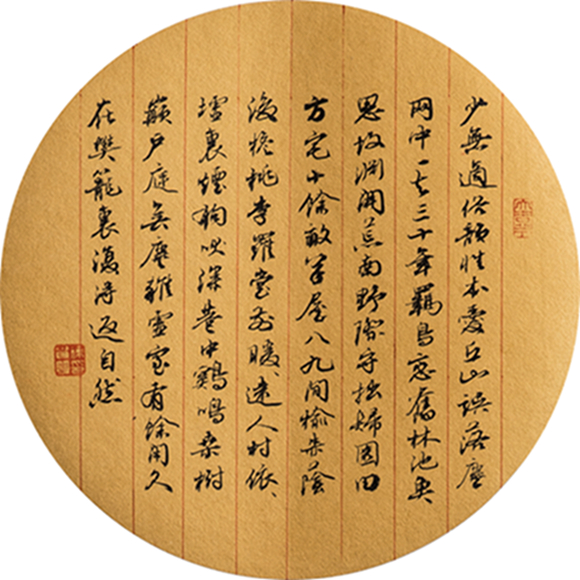 少無適俗韻性本愛丘山誤落塵
网中一去三十年羈鳥戀舊林池魚
思故淵開荒南野際守拙歸園田
方宅十餘畝草屋八九間榆柳蔭
後檐桃李羅堂前暧遠人村依、
墟裏煙狗吠深巷中鷄鳴桑樹
巔戶庭無塵雜虛室有餘閒久
在樊籠裏復得返自然